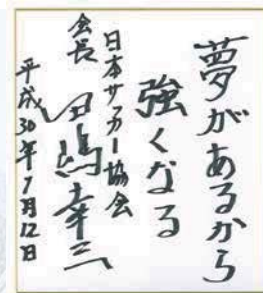 夢があるから
強くなる
日本サッカー協会
会長 田嶋幸三
平成30年7月12日